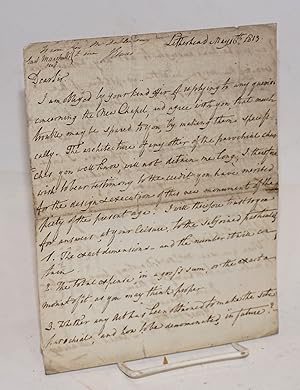 Letherhead May 16th 1813.
Dear Sir
I am obliged by your kind offer of replying to any queries
concerning the New Chapel, and agree with you that much
trouble may be spared to you by making them specifi
cally. The architecture of any other of the parochial chur
ches, you well know will not detain me long, I therefore
wish to bear testimony to the credit you have merited
for the design & execution of this new monument of the
piety of the present age. I will therefore trust to you
for answers, at your leisure, to the subjoined
1. The exact dimensions and the number it will con
tain
2. The total expense, in a gross sum, or the exact a
mount of it as you may think proper
3. Whether any Act has been obtained to make the site
parochial, and how to be denominated, in future?